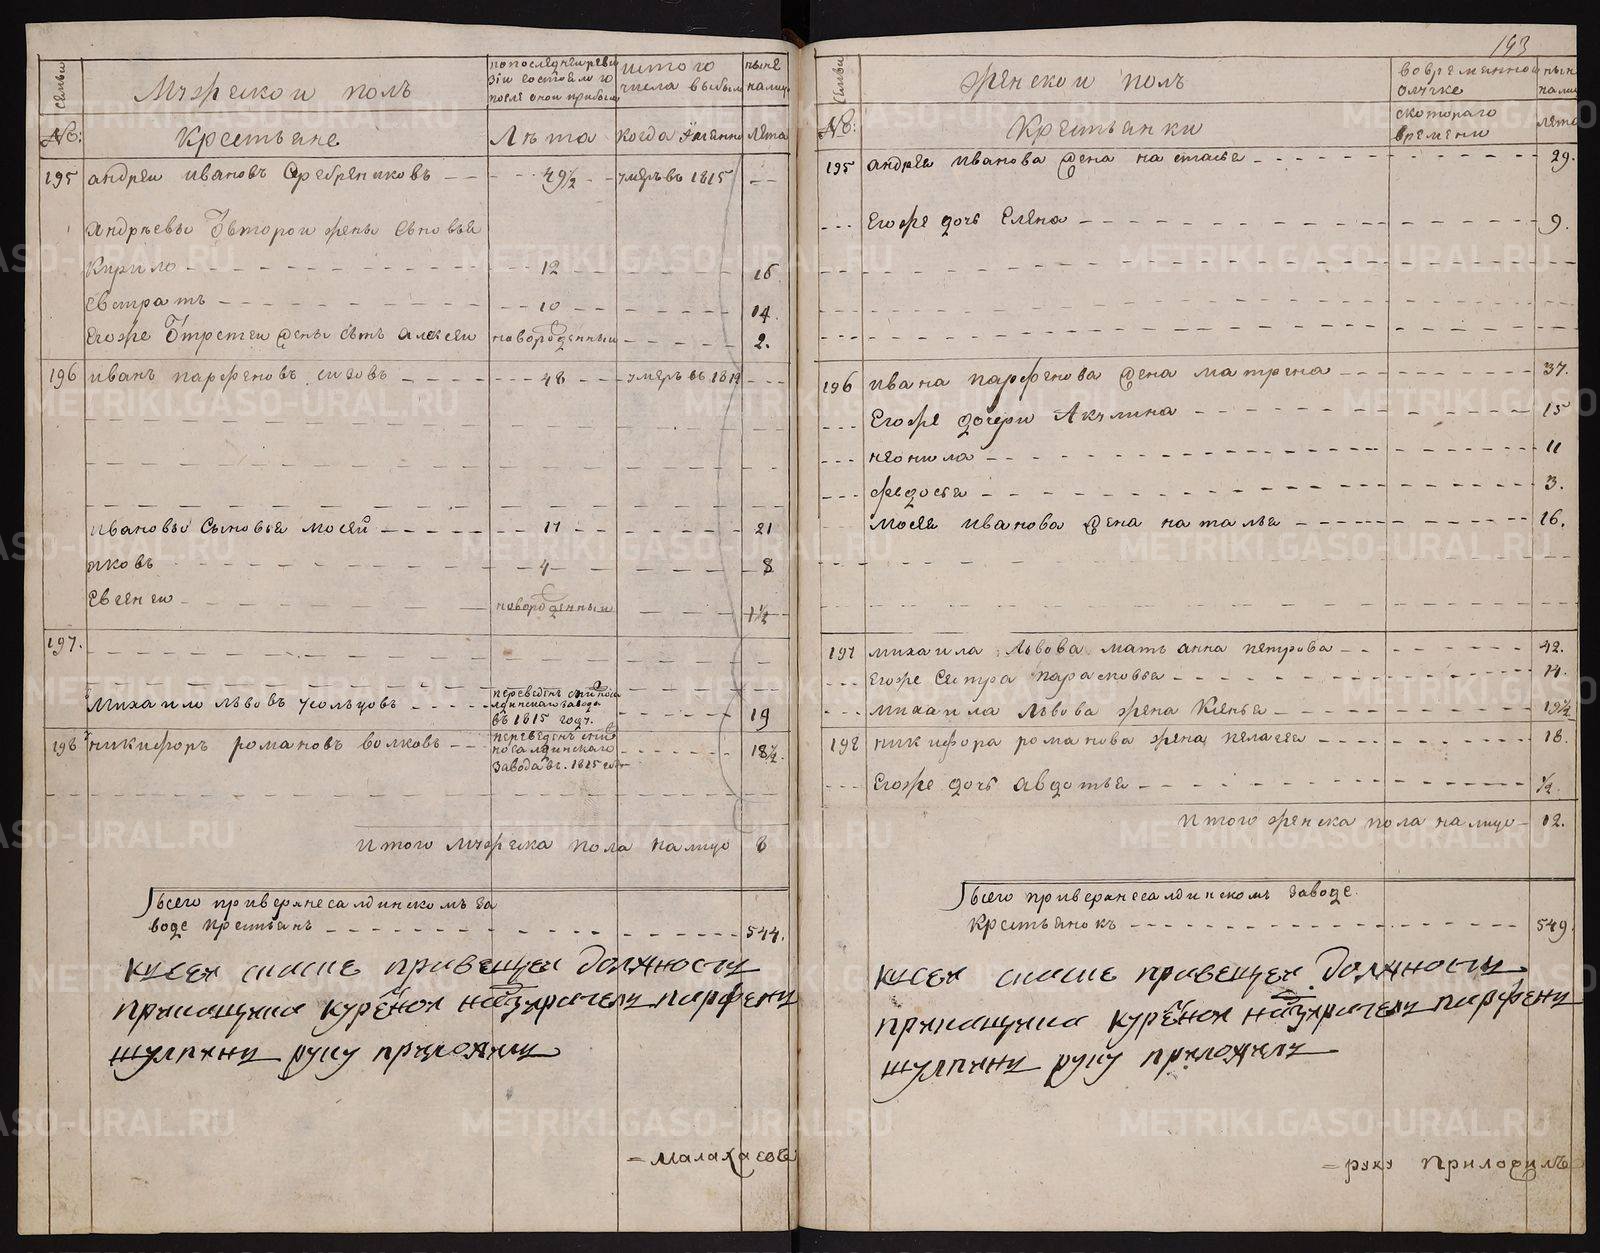 Семьи
Мужескои полъ
по последнеи реви
зіи состояло и
после онои прибыло
изтого
числа выбыло
ныне
налицо
№:
Крестьяне
Лѣта
Когда Имянно
лѣта
195 андреи ивановъ Серебрениковъ 49½ умеръ въ 1815
Андрѣевы Отвторои жены Сыновья
Кирило 12 16
Евстратъ 10 14.
Егоже Оттретеи жены Сынъ Алексеи новорожденныи 2.
196 иванъ парфеновъ сизовъ 48 умеръ въ 1812
ивановы Сыновья мосей 17 21
яковъ 4 8
Евгенеи новорожденныи 1½
197.
Михаило львовъ усольцовъ
переведенъ сниж
салдинскаго завода
въ 1815 году.
19
198 никифоръ романовъ волковъ
переведенъ сниж
несалдинскаго
завода въ 1815 году
18½.
Итого мужеска пола налицо 8
Всего приверхнесалдинскомъ за
воде крестьянъ 544.
Ксей скаске
должности
прикащика
руку приложилъ
Малахаевъ
193
Семьи
женскои полъ
вовременнои
отлучке
ныне
налицо
№:
Крестьянки
скотораго
времени
лета
195 андрея иванова жена настасья 29.
Егоже дочь Елена 9.
196 ивана парфенова жена матрена 37.
Егоже дочери Акулина 15
неонила 11
федосья 3.
мосея иванова жена наталья 16.
197 михаила львова мать анна петрова 42.
Егоже Сестра парасковья 14.
михаила львова жена Ксенья 19½
198 никифора романова жена пелагея 18.
Егоже дочь авдотья ½.
Итого женска пола налицо 12.
Всего приверхнесалдинскомъ заводе
Крестьянокъ 549.
Ксей скаске
должности
прикащика
руку приложилъ
руку приложилъ
METRIKI.GASO-URAL.RU